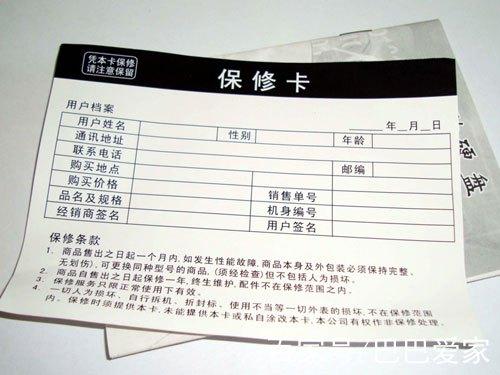 凭本卡保修
请注意保留
保修卡
用户档案
年 月 日
用户姓名 性别 年龄
通讯地址
联系电话 邮编
购买地点
购买价格 销售单号
品名及规格 机身编号
经销商签名 用户签名
保修条款
1、商品售出之日起一个月内,如发生性能故障,商品本身及外包装必须保持完整、
无划伤),可更换同种型号的商品,(须经检查)但不包括人为损坏.
2、商品自售出之日起保修一年,终生维护,配件不在保修范围之内.
3、保修服务只限正常使用下有效.
4、一切人为损坏、自行拆机、折封标、使用不当等一切外表的损坏,不在保修范围
内。保修时须提供本卡,未能提供本卡或私自涂改本卡,本公司有权作非保修处理.
硬盘
巴巴爱家